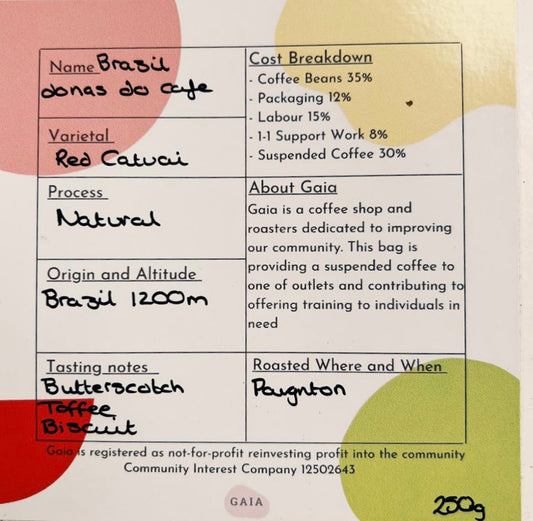 Name Brazil
donas do cafe
Varietal
Red Catuai
Process
Natural
Origin and Altitude
Brazil 1200m
Tasting notes
Butterscotch
Toffee
Biscuit
Cost Breakdown
- Coffee Beans 35%
- Packaging 12%
- Labour 15%
- 1-1 Support Work 8%
- Suspended Coffee 30%
About Gaia
Gaia is a coffee shop and
roasters dedicated to improving
our community. This bag is
providing a suspended coffee to
one of outlets and contributing to
offering training to individuals in
need
Roasted Where and When
Paignton
Gaia is registered as not-for-profit reinvesting profit into the community
Community Interest Company 12502643
GAIA
250g